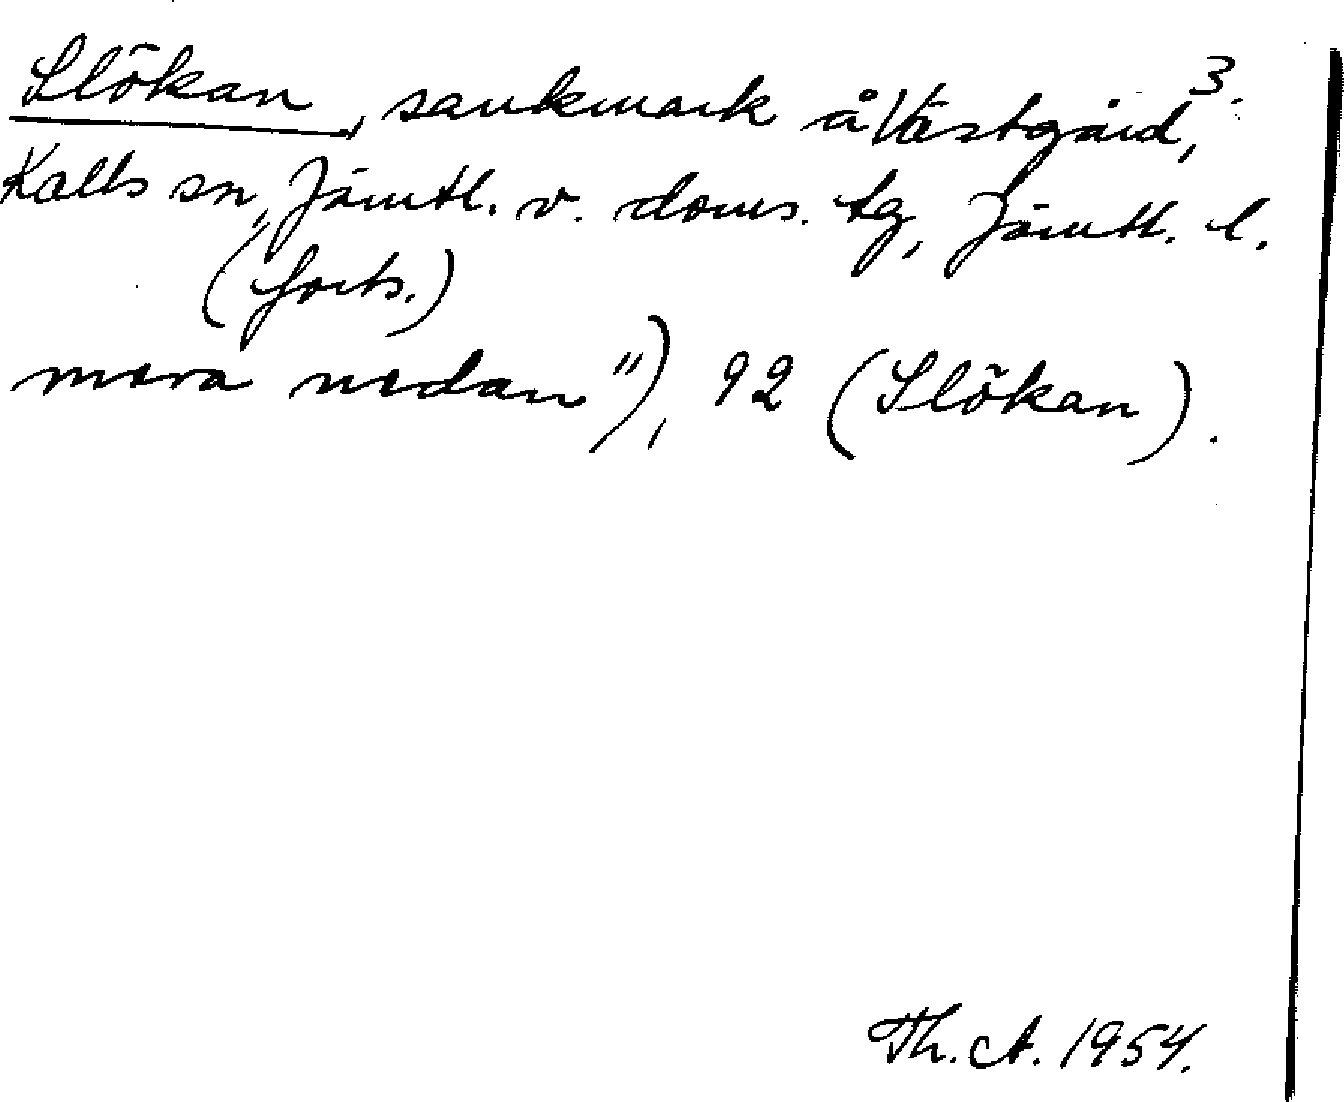 3.
Slökan, sankmark å Västgård,
Kalls sn, Jämtl. v. doms. tg, Jämtl. l.
(forts.)
mera nedan"), 92 (Slökan).
Th. A. 1954.